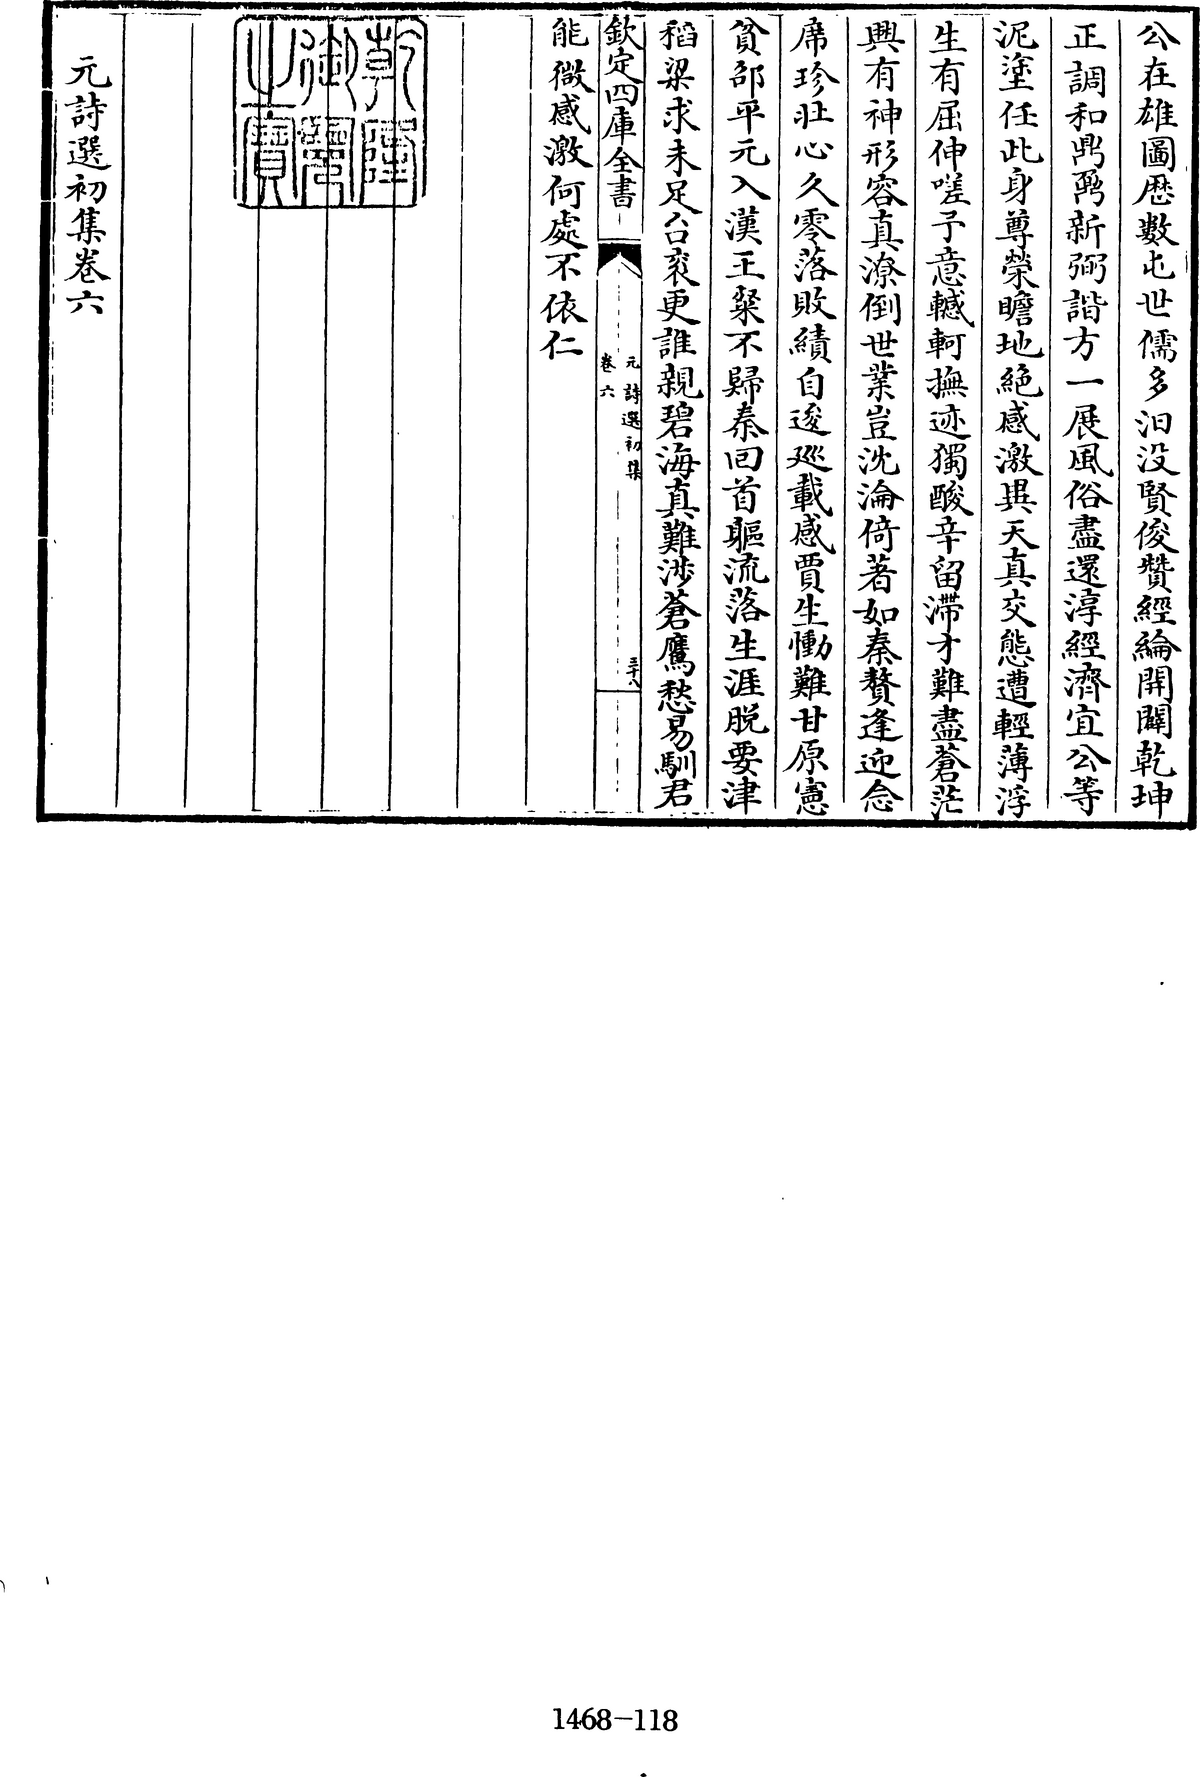 公在雄圖歴數屯世儒多汩没賢俊贊經綸開闢乾坤
正調和鼎鼐新弼諧方一展風俗盡還淳經濟宜公等
泥塗任此身尊榮瞻地絶感激異天真交態遭輕薄浮
生有屈伸嗟予意轗軻撫迹獨酸辛留滯才難盡蒼茫
興有神形容真潦倒世業豈沈淪倚著如秦贅逢迎念
席珍壯心久零落敗績自逡廵載感賈生慟難甘原憲
貧邵平元入漢王粲不歸秦回首軀流落生涯脱要津
稻粱求未足台衮更誰親碧海真難渉蒼鷹愁易馴君
欽定四庫全書
元詩選初集
卷六
三十八
能微感激何處不依仁
乾隆御覽之寶
元詩選初集卷六
1468-118